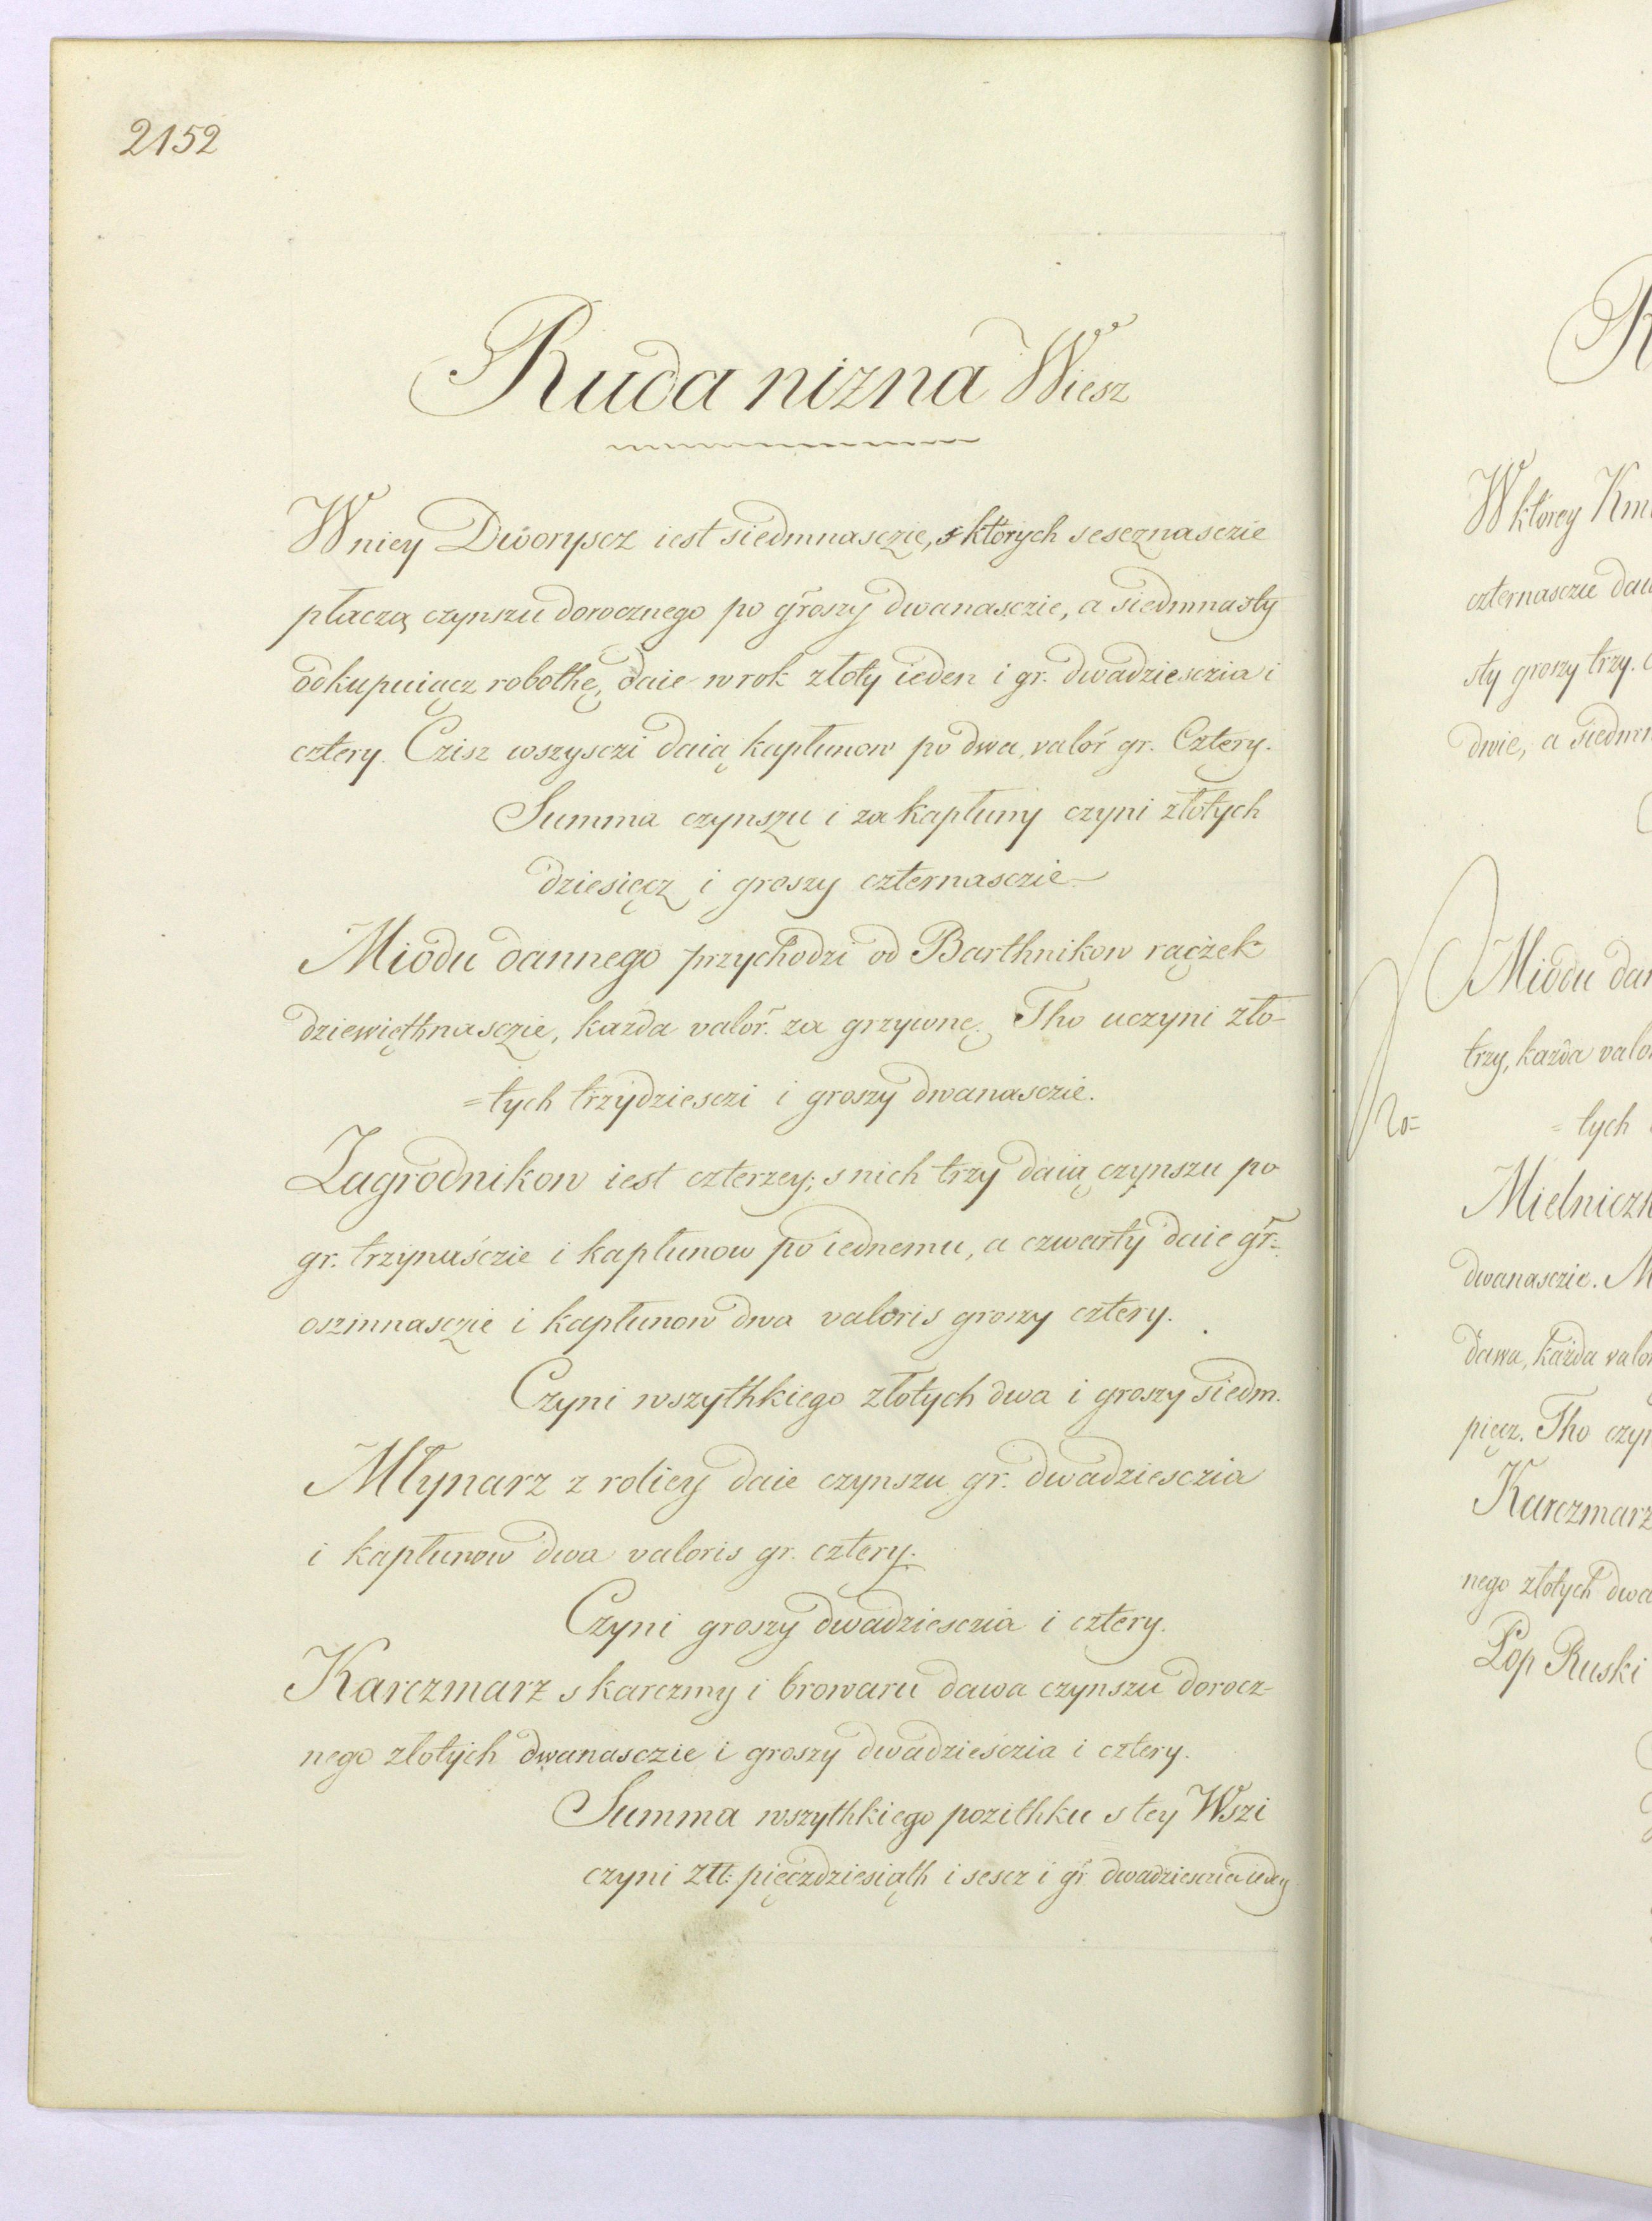 2152
Ruda nizna Wiesz
W niey Dworyscz iest siedmnasczie, s których sesznasczie
płaczą czynszu dorocznego po groszy dwanasczie, a siedmnasty
odkupuiącz robothę, daie w rok złoty ieden i gr. dwadziesczia i
cztery. Czisz wszysczi daią kapłunow po dwa, valor gr. Cztery.
Summa czynszu i za kapłuny czyni złotych
dziesięcz i groszy czternasczie
Miodu dannego przychodzi od Barthnikow rączek
dziewięthnasczie, każda valor. za grzywnę. Tho uczyni zło-
=tych trzydziesczi i groszy dwanasczie.
Zagrodnikow iest czterzey; s nich trzy daią czynszu po
gr. trzynasczie i kapłunow po iednemu, a czwarty daie gr.
oszmnasczie i kapłunow dwa valoris groszy cztery.
Czyni wszythkiego złotych dwa i groszy siedm.
Młynarz z roliey daie czynszu gr. dwadziesczia
i kapłunow dwa valoris gr. cztery.
Czyni groszy dwadziesczia i cztery.
Karczmarz s karczmy i browaru dawa czynszu dorocz-
nego złotych dwanasczie i groszy dwadziesczia i cztery.
Summa wszythkiego pozithku s tey Wszi
czyni złł: pięczdziesiąth i sescz i gr. dwadziesczia
W ktorey
czternasczie
sty groszy trzy.
dwie, a
Miodu
trzy, każda
=tych
dwanasczie.
dawa, każda
pięcz. Tho
Karczmarz
nego złotych
Pop Ruski